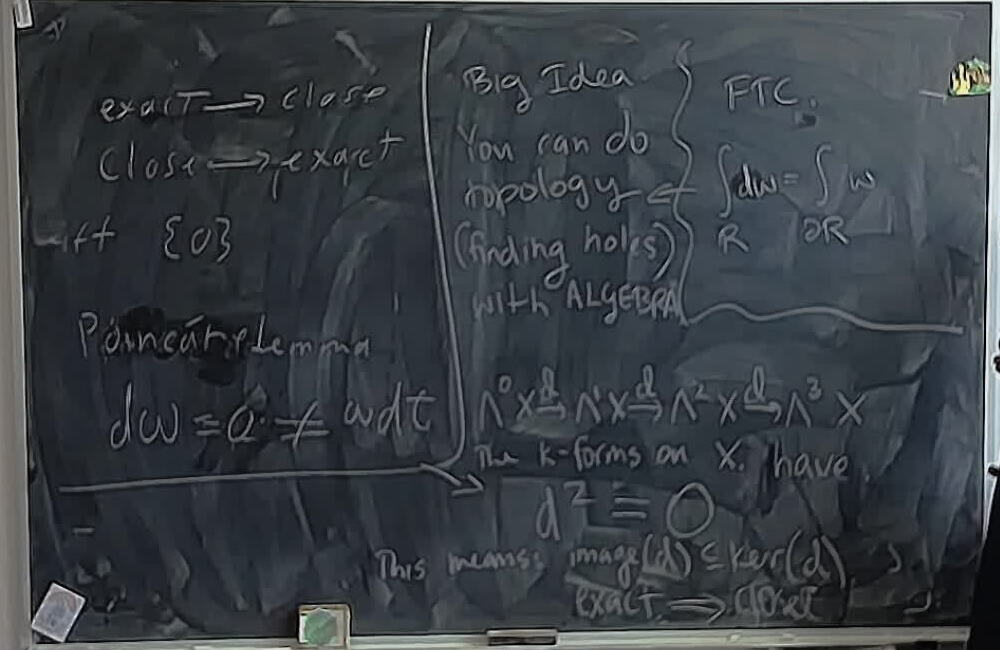 exact → close
Close → exact
iff {0}
Poincaré Lemma
dω = 0 ≠ ωdt
Big Idea
You can do
topology ←
(finding holes)
with ALGEBRA
FTC.
∫dω = ∫ω
R ∂R
Λ⁰X →d Λ¹X →d Λ²X →d Λ³X
The k-forms on X. have
d² ≡ 0
This means: image(d) ⊆ ker(d)
exact ⟹ closed